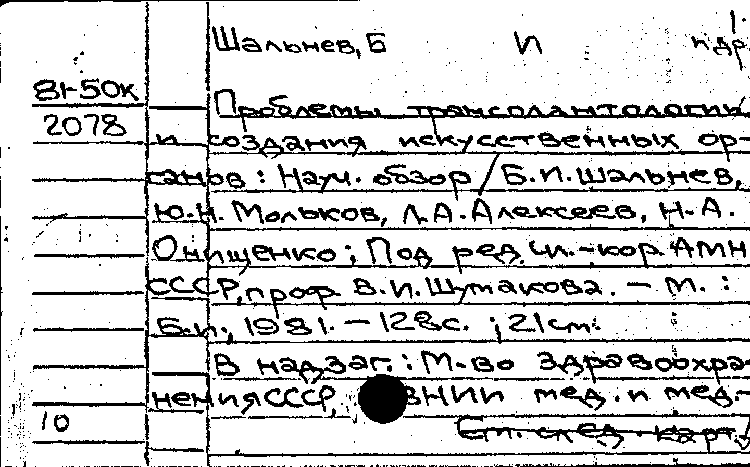 Шальнев, Б И и др
81-50к
Проблемы трансплантологии
2078
и создания искусственных ор-
ганов : Науч. обзор / Б.И. Шальнев,
Ю.Н. Мольков, Л.А. Алексеев, Н.А.
Онищенко ; Под ред. чл.-кор. АМН
СССР, проф. В.И. Шумакова. - М. :
Б.и., 1981. - 128с. ; 21см.
В надзаг. : М-во здравоохра-
нения СССР, ВНИИ мед. и мед.-
10
См. след. карт.